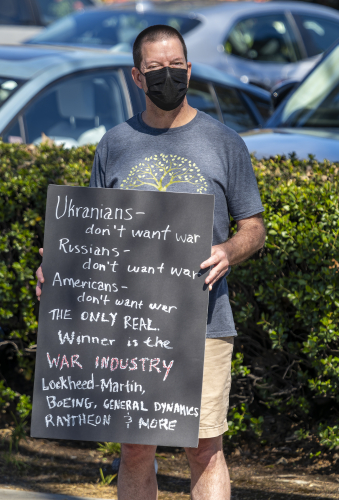 Ukranians-
don't want war
Russians-
don't want war
Americans-
don't want war
THE ONLY REAL
Winner is the
WAR INDUSTRY
Lockheed-Martin,
BOEING, GENERAL DYNAMICS
RAYTHEON & MORE